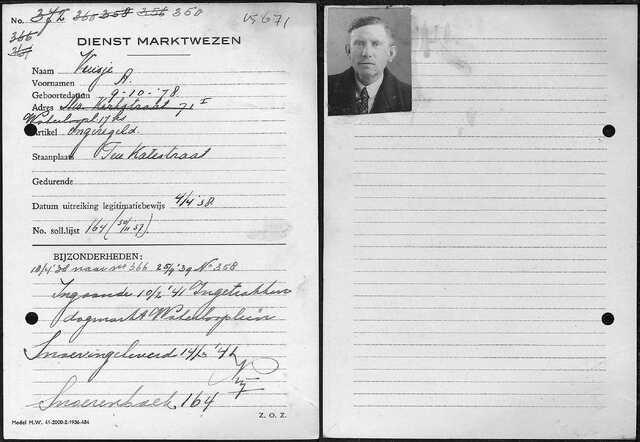 No. 372 366 358 356 350
366
367
VS 671
DIENST MARKTWEZEN
Naam Kuisje
Voornamen A.
Geboortedatum 9-10-'78
Adres Nw. Kerkstraat 71 I
Waterloopl 17 hs
Artikel ongeregeld.
Staanplaats Ten Katestraat
Gedurende
Datum uitreiking legitimatiebewijs 4/4 '38
No. soll.lijst 164 (30/11 37)
BIJZONDERHEDEN:
18/4 '38 naar no 366 25/9 '39 No 358
Ingaande 10/2 '41 Ingetrokken
dagmarkt Waterlooplein
Snoeringeleverd
Snoerenboek 164
Z. O. Z.
Model M.W. 41-2000-2-1936-484